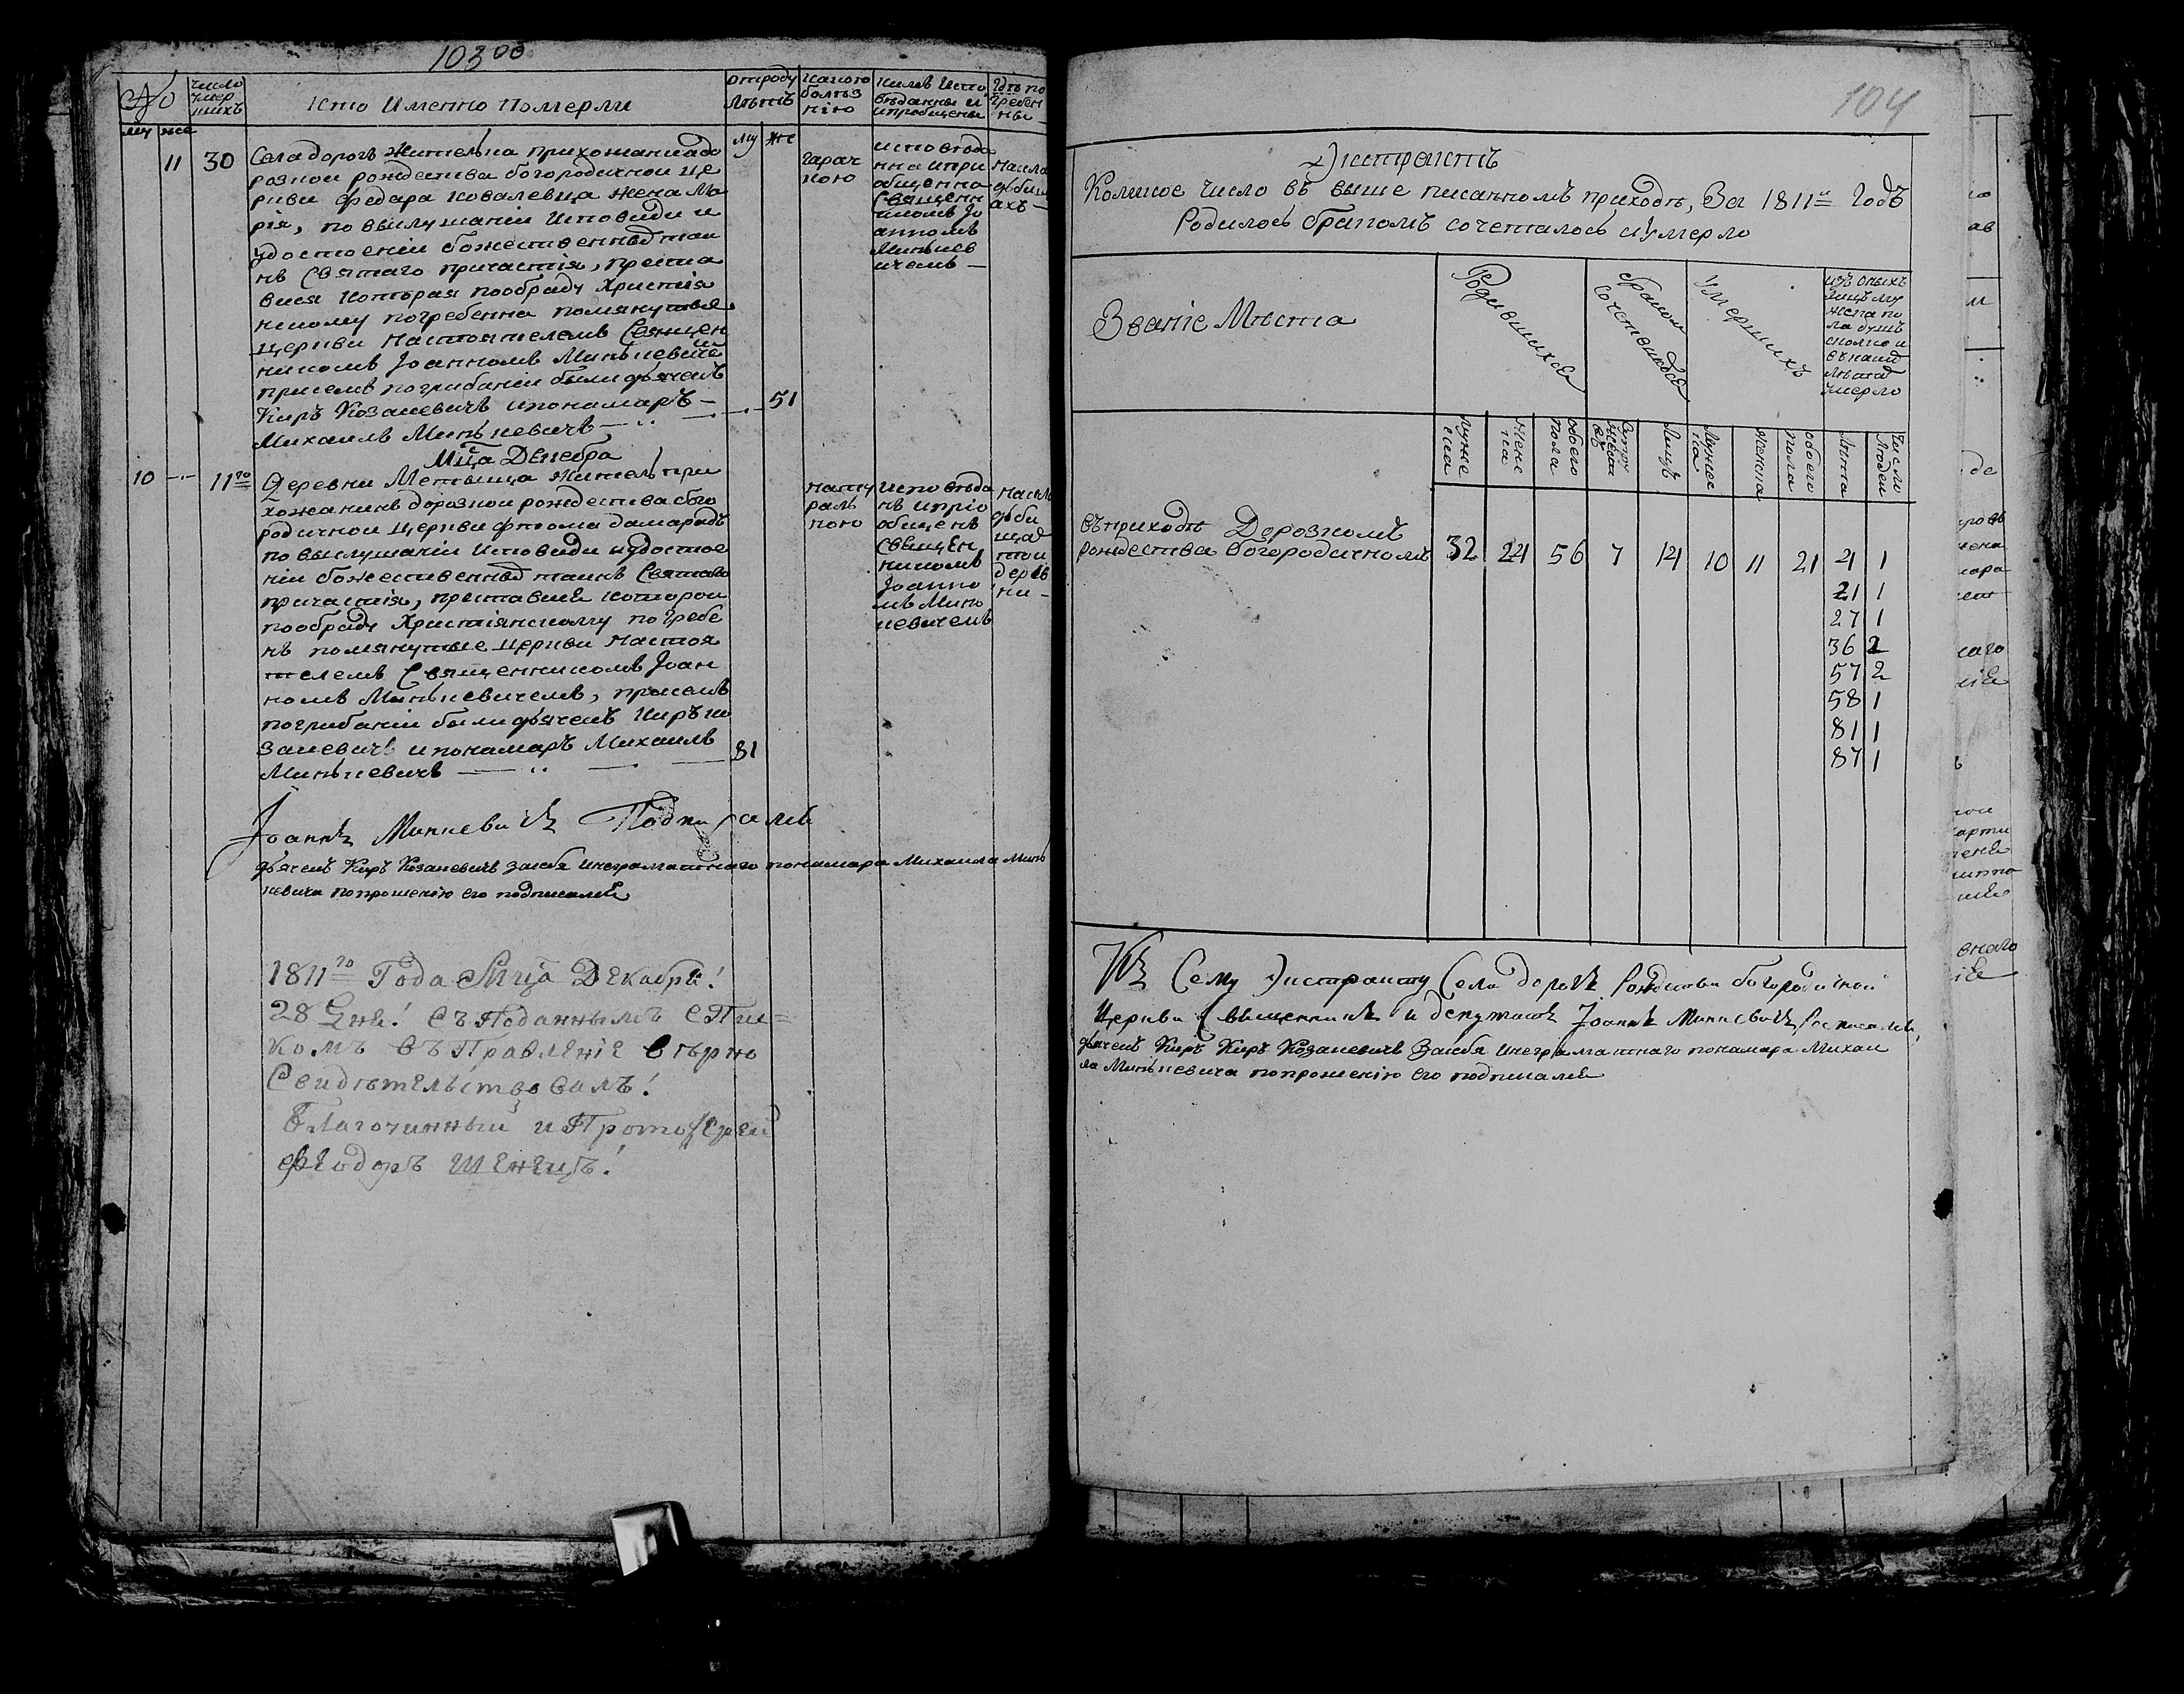 103 об
№
число умершихъ
Кто Именно Померли
отроду Лѣтъ
какою болѣзнію
кимъ Исповѣданны и пріобщены
Гдѣ погребенны
му же
му же
11 30
Села дорогъ Жителька прихожанка до
розкои рождества богородичной це
ркви Федара Ковалевца жена Ма
рія, по выслушаніи Исповиди и
удостоеніи божественных таи
нъ Святаго причастія, преста
вися Которая пообраду Христія
нскому погребенна помянутыя
церкви Настоятелемъ Священ
никомъ Іоанномъ Минкевичем
присемъ погрибаніи были дьячекъ
Киръ Козакевичъ ипономаръ —
Михаилъ Минкевичъ —
51
гарач
кою
исповѣда
нна ипри
общенна
Священ
никомъ Іо
анномъ
Минкев
ичемъ —
Мца Декебра
10 11го
Деревни Метвица Житель при
хожанинъ дорозкои рождества бого
родичнои церкви Фтома дамарадъ
по выслушаніи Исповиди иудостое
ніи божественных таинъ Святаго
причастія, преставися которои
пообраду Христіянскому погребе
нъ помянутые церкви Настоя
телемъ Священникомъ Іоан
номъ Минкевичемъ, присемъ
погрибаніи были дьячекъ Киръ Ко
закевичъ ипономаръ Михаилъ
Минкевичъ —
81
нату
раль
ною
Исповѣда
нъ ипріо
общенъ
Священ
никомъ
Іоанно
мъ Мин
кевичемъ
Іоаннъ Минкевичъ Подписалъ
дьячекъ Киръ Козакевичъ засебя инеграматнаго пономара Михаила Мин
кевича попрошенію его подписался
1811го Года Мца Декабря!
28 Дня! Съ Поданнымъ Спис=
комъ въ Правленіе вѣрно
Свидѣтельствовалъ!
Благочинный и Протоіерей
Феодоръ Шенецъ!
104
Экстрактъ
Коликое число въ выше писанномъ приходѣ, За 1811и Годъ
Родилось бракомъ сочеталось иумерло
Званіе Мѣста
Родившихся
бракомъ Сочетавшихся
Умершихъ
изъ оныхъ
лицъ му
жска по
ла душъ
сколко и
въ каких
лѣтах
умерло
Мужеска
Женска
обоего пола
Лицъ
Мужеска
Женска
обоего пола
Лѣта
Число Людеи
въ приходѣ Дорозкомъ
рождества богородичномъ
32 24 56 7 14 10 11 21 4 1
21 1
27 1
36 2
57 2
58 1
81 1
87 1
Къ Сему Экстракту Села дорогъ Рождества богородичной
Церкви Священникъ и депутатъ Іоаннъ Минкевичъ Росписался,
дьячекъ Киръ Киръ Козакевичъ Засебя инеграматнаго пономара Михаи
ла Минкевича попрошенію его подписался